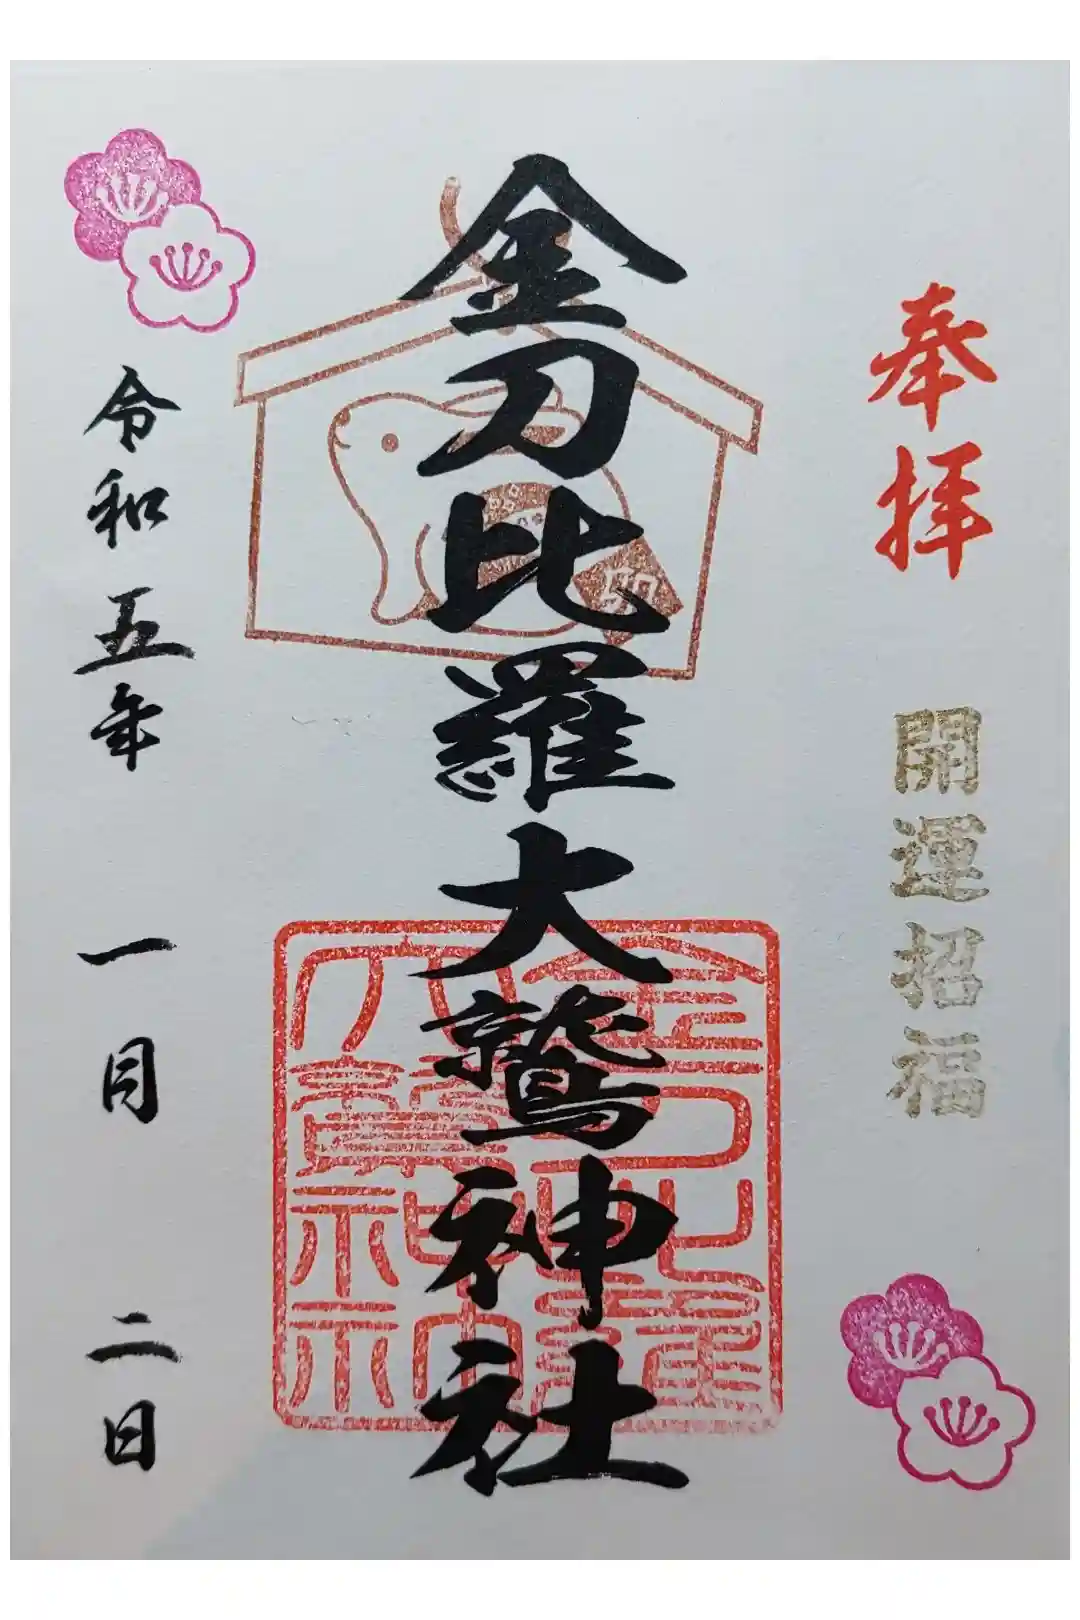 奉拝
開運招福
金刀比羅大鷲神社
卯
令和五年
一月
二日